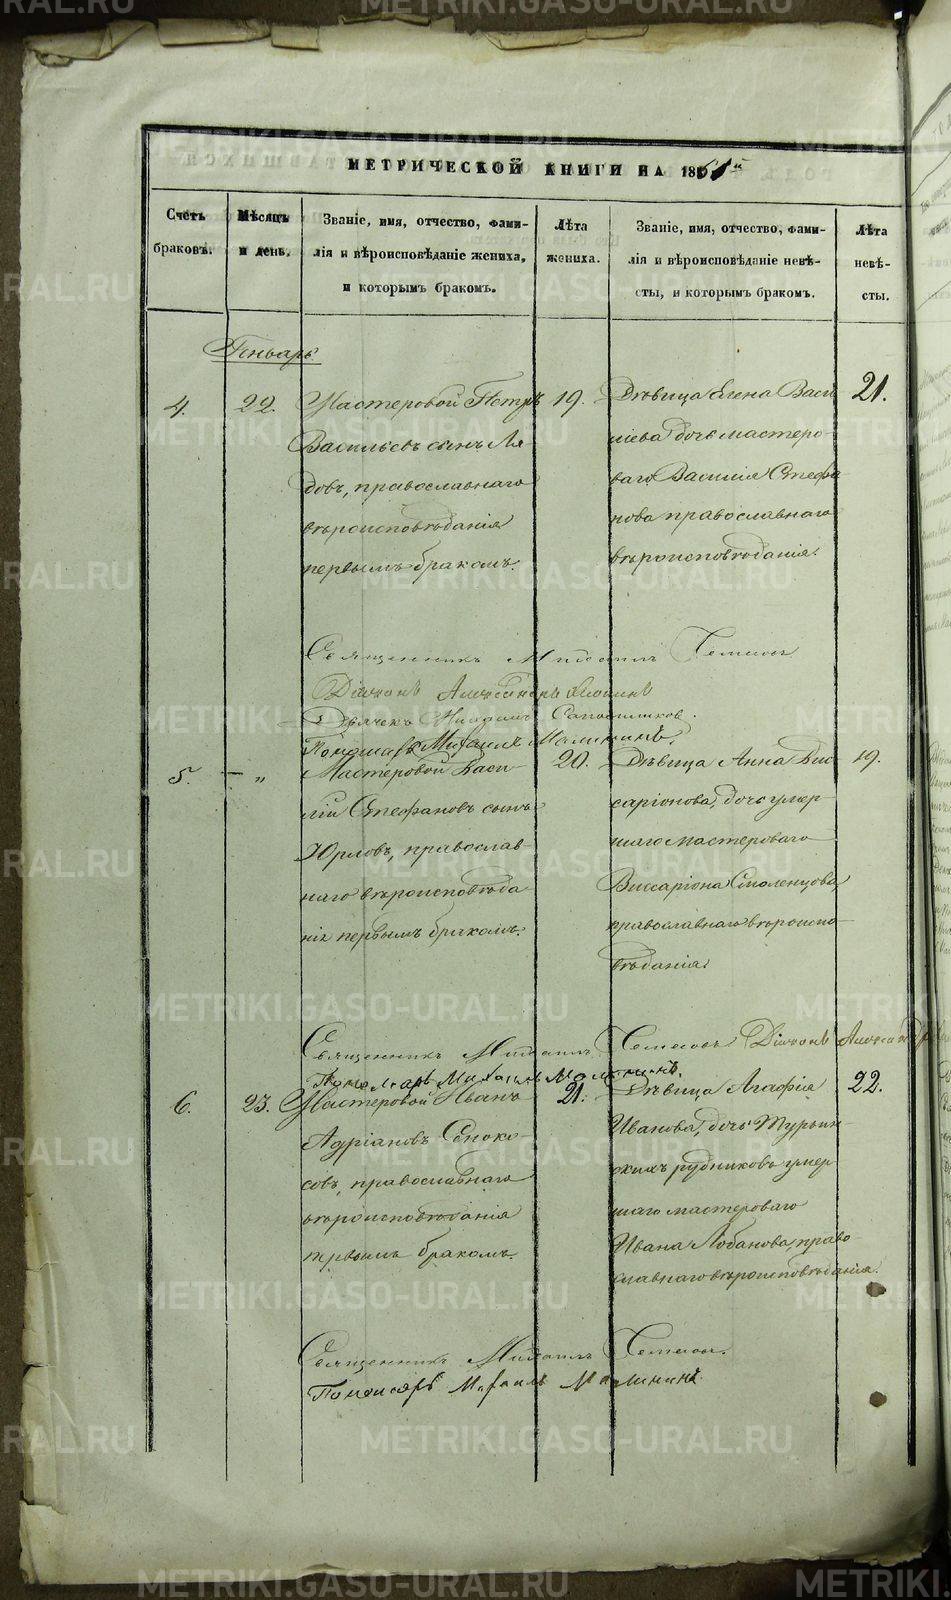 МЕТРИЧЕСКОЙ КНИГИ НА 1861й
Счетъ браковъ.
Мѣсяцъ и день.
Званіе, имя, отчество, фами-
лія и вѣроисповѣданіе жениха,
и которымъ бракомъ.
Лѣта жениха.
Званіе, имя, отчество, фами-
лія и вѣроисповѣданіе невѣ-
сты, и которымъ бракомъ.
Лѣта
невѣ-
сты.
Генварь.
4.
22.
Мастеровой Петръ
Васильевъ сынъ Ля
довъ, православнаго
вѣроисповѣданія
первымъ бракомъ.
19.
Дѣвица Елена Васи
ліева дочь мастеро-
ваго Василія Стефа
нова православнаго
вѣроисповѣданія.
21.
Священникъ Михаилъ
Діаконъ Александръ
Дьячекъ
Пономарь Михаилъ Малининъ.
5.
— "
Мастеровой Васи-
лій Стефановъ сынъ
Юрловъ, православ-
наго вѣроисповѣда
нія первымъ бракомъ.
20.
Дѣвица Анна Вис
саріонова, дочь умер-
шаго мастероваго
Виссаріона Смоленцова
православнаго вѣроиспо-
вѣданія.
19.
Священникъ Михаилъ Діаконъ Александр
Пономарь Михаилъ Малининъ.
6.
23.
Мастеровой Иванъ
Адріановъ Сѣноко-
совъ, православнаго
вѣроисповѣданія
первымъ бракомъ.
21.
Дѣвица Агафія
Иванова, дочь Турьин-
скихъ рудниковъ умер-
шаго мастероваго
Ивана Лобанова, право-
славнаго вѣроисповѣданія.
22.
Священникъ Михаилъ
Пономарь Михаилъ Малининъ
METRIKI.GASO-URAL.RU